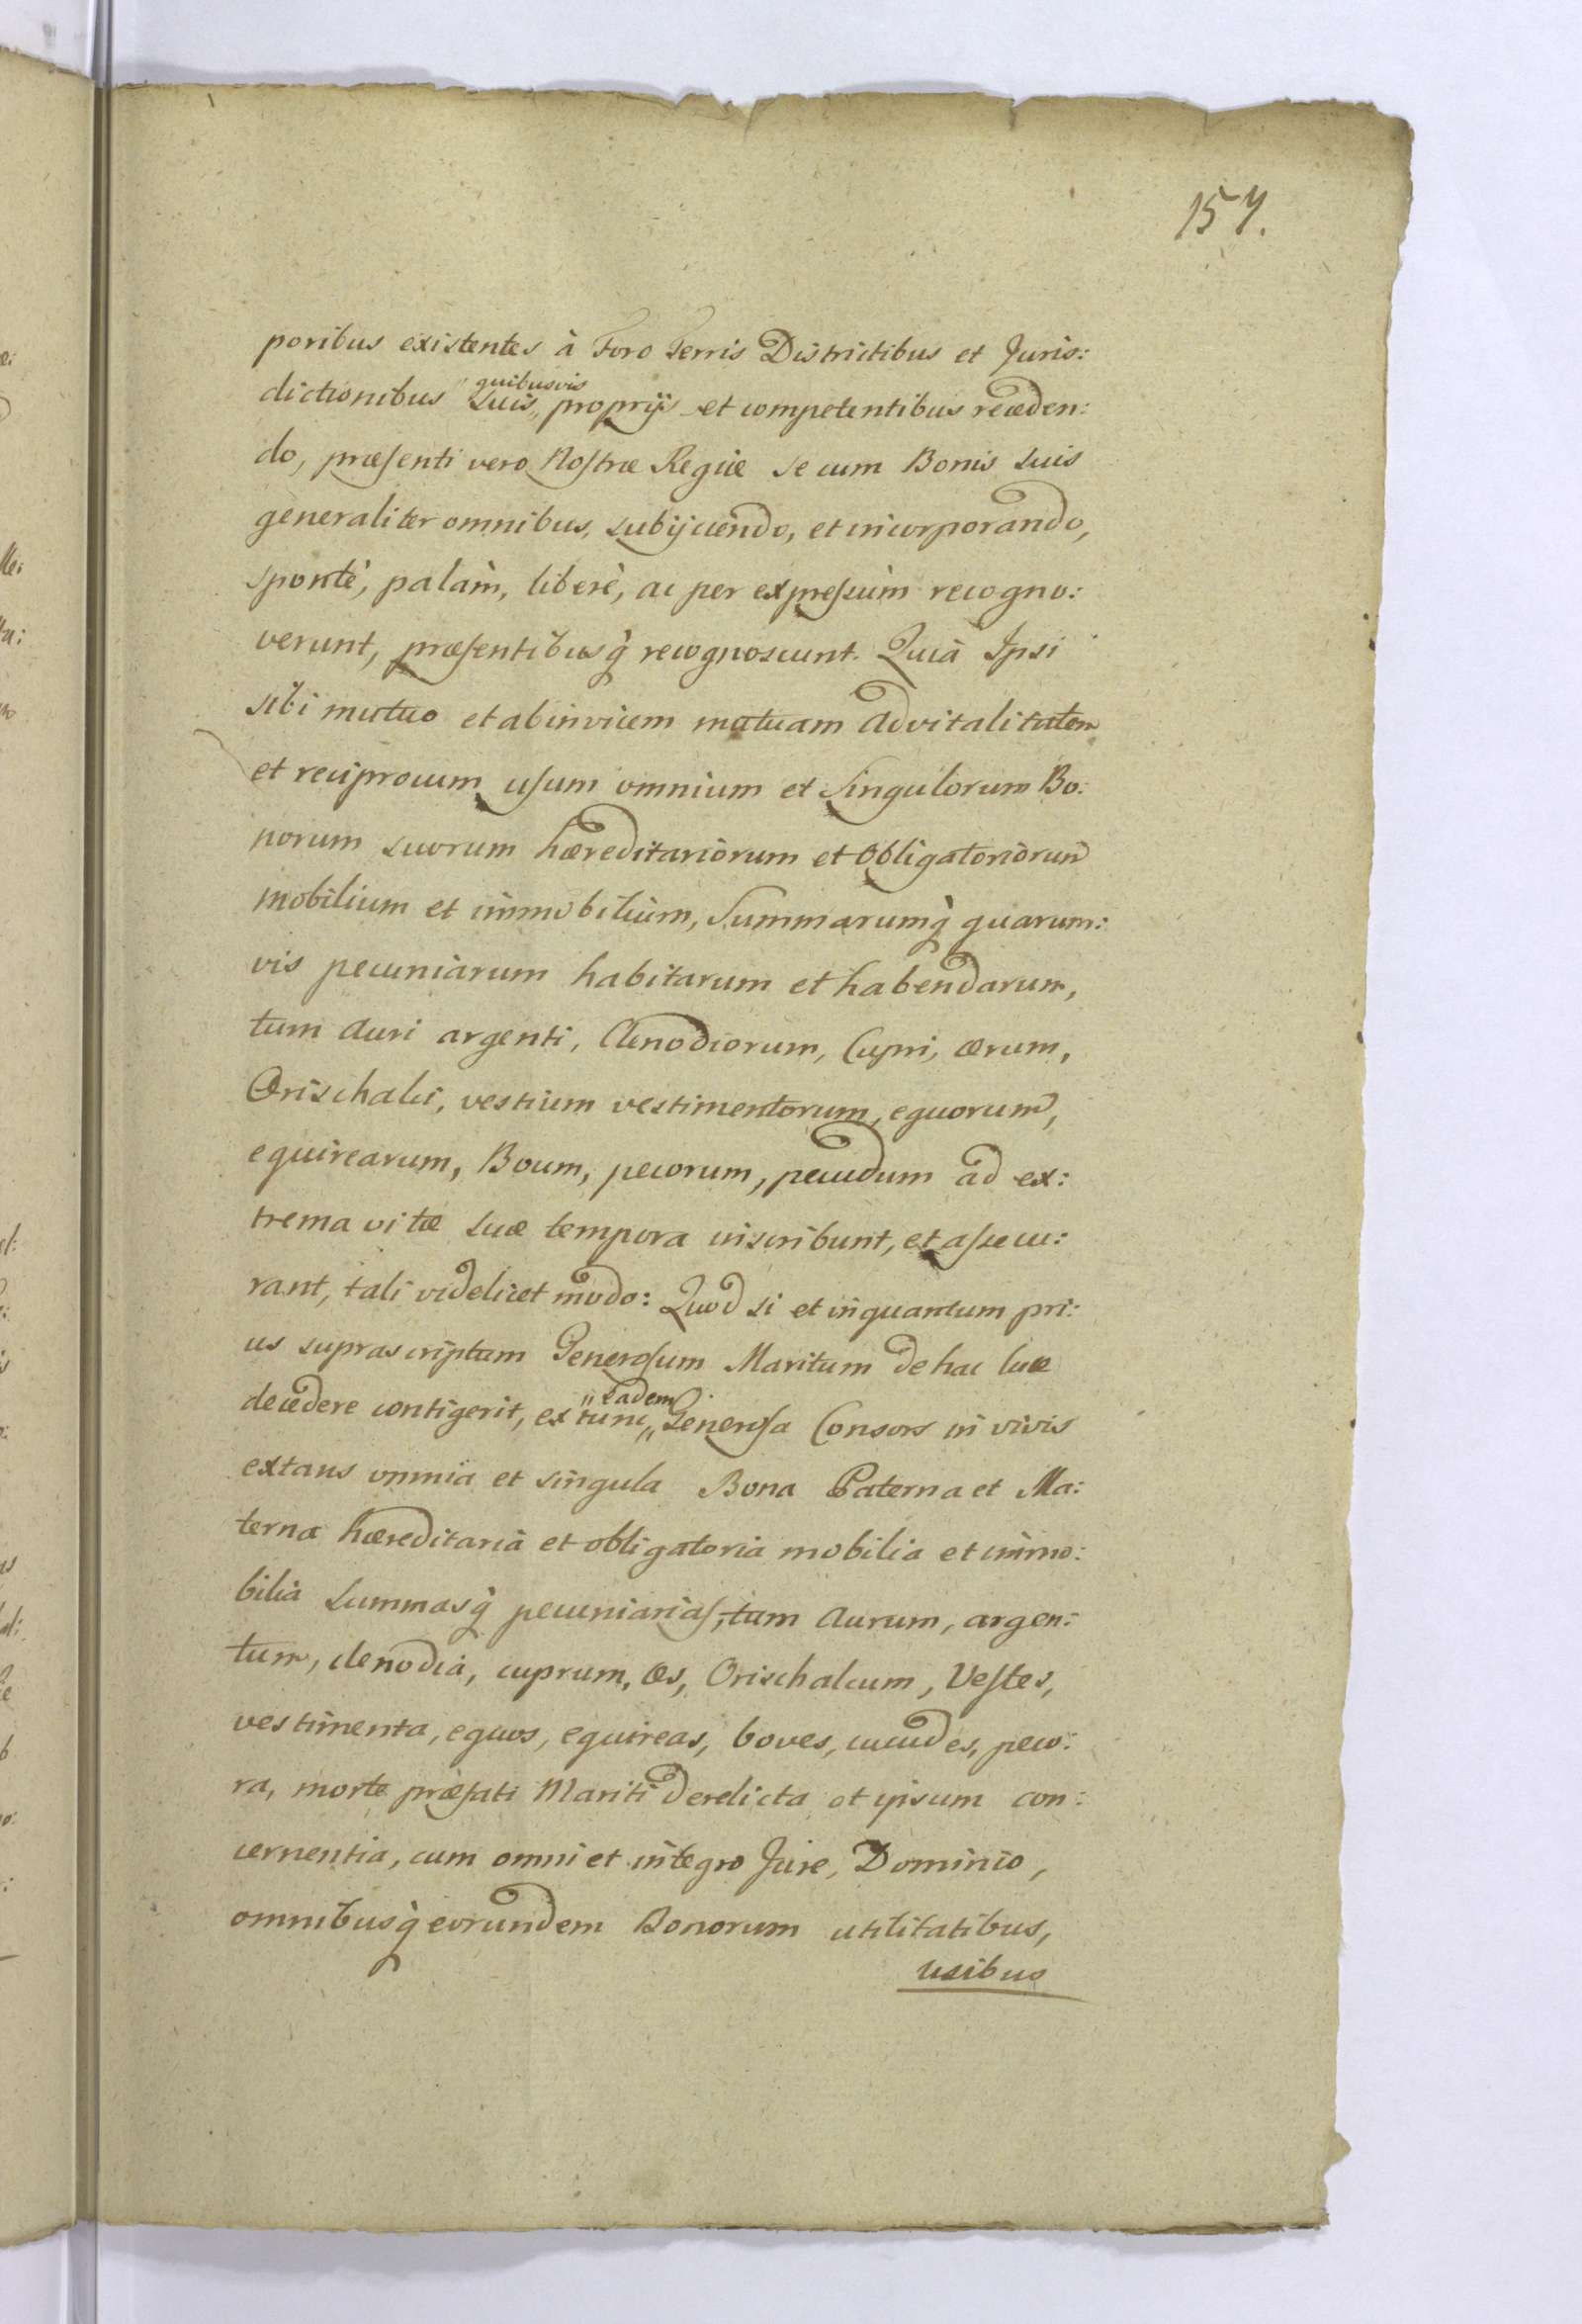 157.
poribus existentes à Foro Terris Districtibus et Juris:
dictionibus suis quibusvis proprijs et competentibus receden:
do, præsenti vero Nostræ Regiæ se cum Bonis suis
generaliter omnibus, subijciendo, et incorporando,
sponte, palàm, liberè, ac per expressum recogno:
verunt, præsentibusq̀ recognoscunt. Quià Ipsi
sibi mutuo et abinvicem mutuam advitalitatem
et reciprocum usum omnium et singulorum Bo:
norum suorum hæreditariorum et obligatoriorum
mobilium et immobilium, Summarumq̀ quarum:
vis pecuniarum habitarum et habendarum,
tum auri argenti, Clenodiorum, Cupri, ærum,
Orischalci, vestium vestimentorum, equorum,
equirearum, Boum, pecorum, pecudum ad ex:
trema vitæ suæ tempora inscribunt, et assecu:
rant, tali videlicet modo: Quod si et inquantum pri:
us suprascriptum Generosum Maritum de hac luce
decedere contigerit, ex tunc eadem Generosa Consors in vivis
extans omnia et singula Bona Paterna et Ma:
terna hæreditaria et obligatoria mobilia et immo:
bilia summasq̀ pecuniarias, tum aurum, argen:
tum, clenodia, cuprum, æs, Orischalcum, Vestes,
vestimenta, equos, equireas, boves, cucudes, peco:
ra, morte præfati Mariti derelicta et ipsum con:
cernentia, cum omni et integro Jure, Dominio,
omnibusq̀ eorundem Bonorum utilitatibus,
usibus